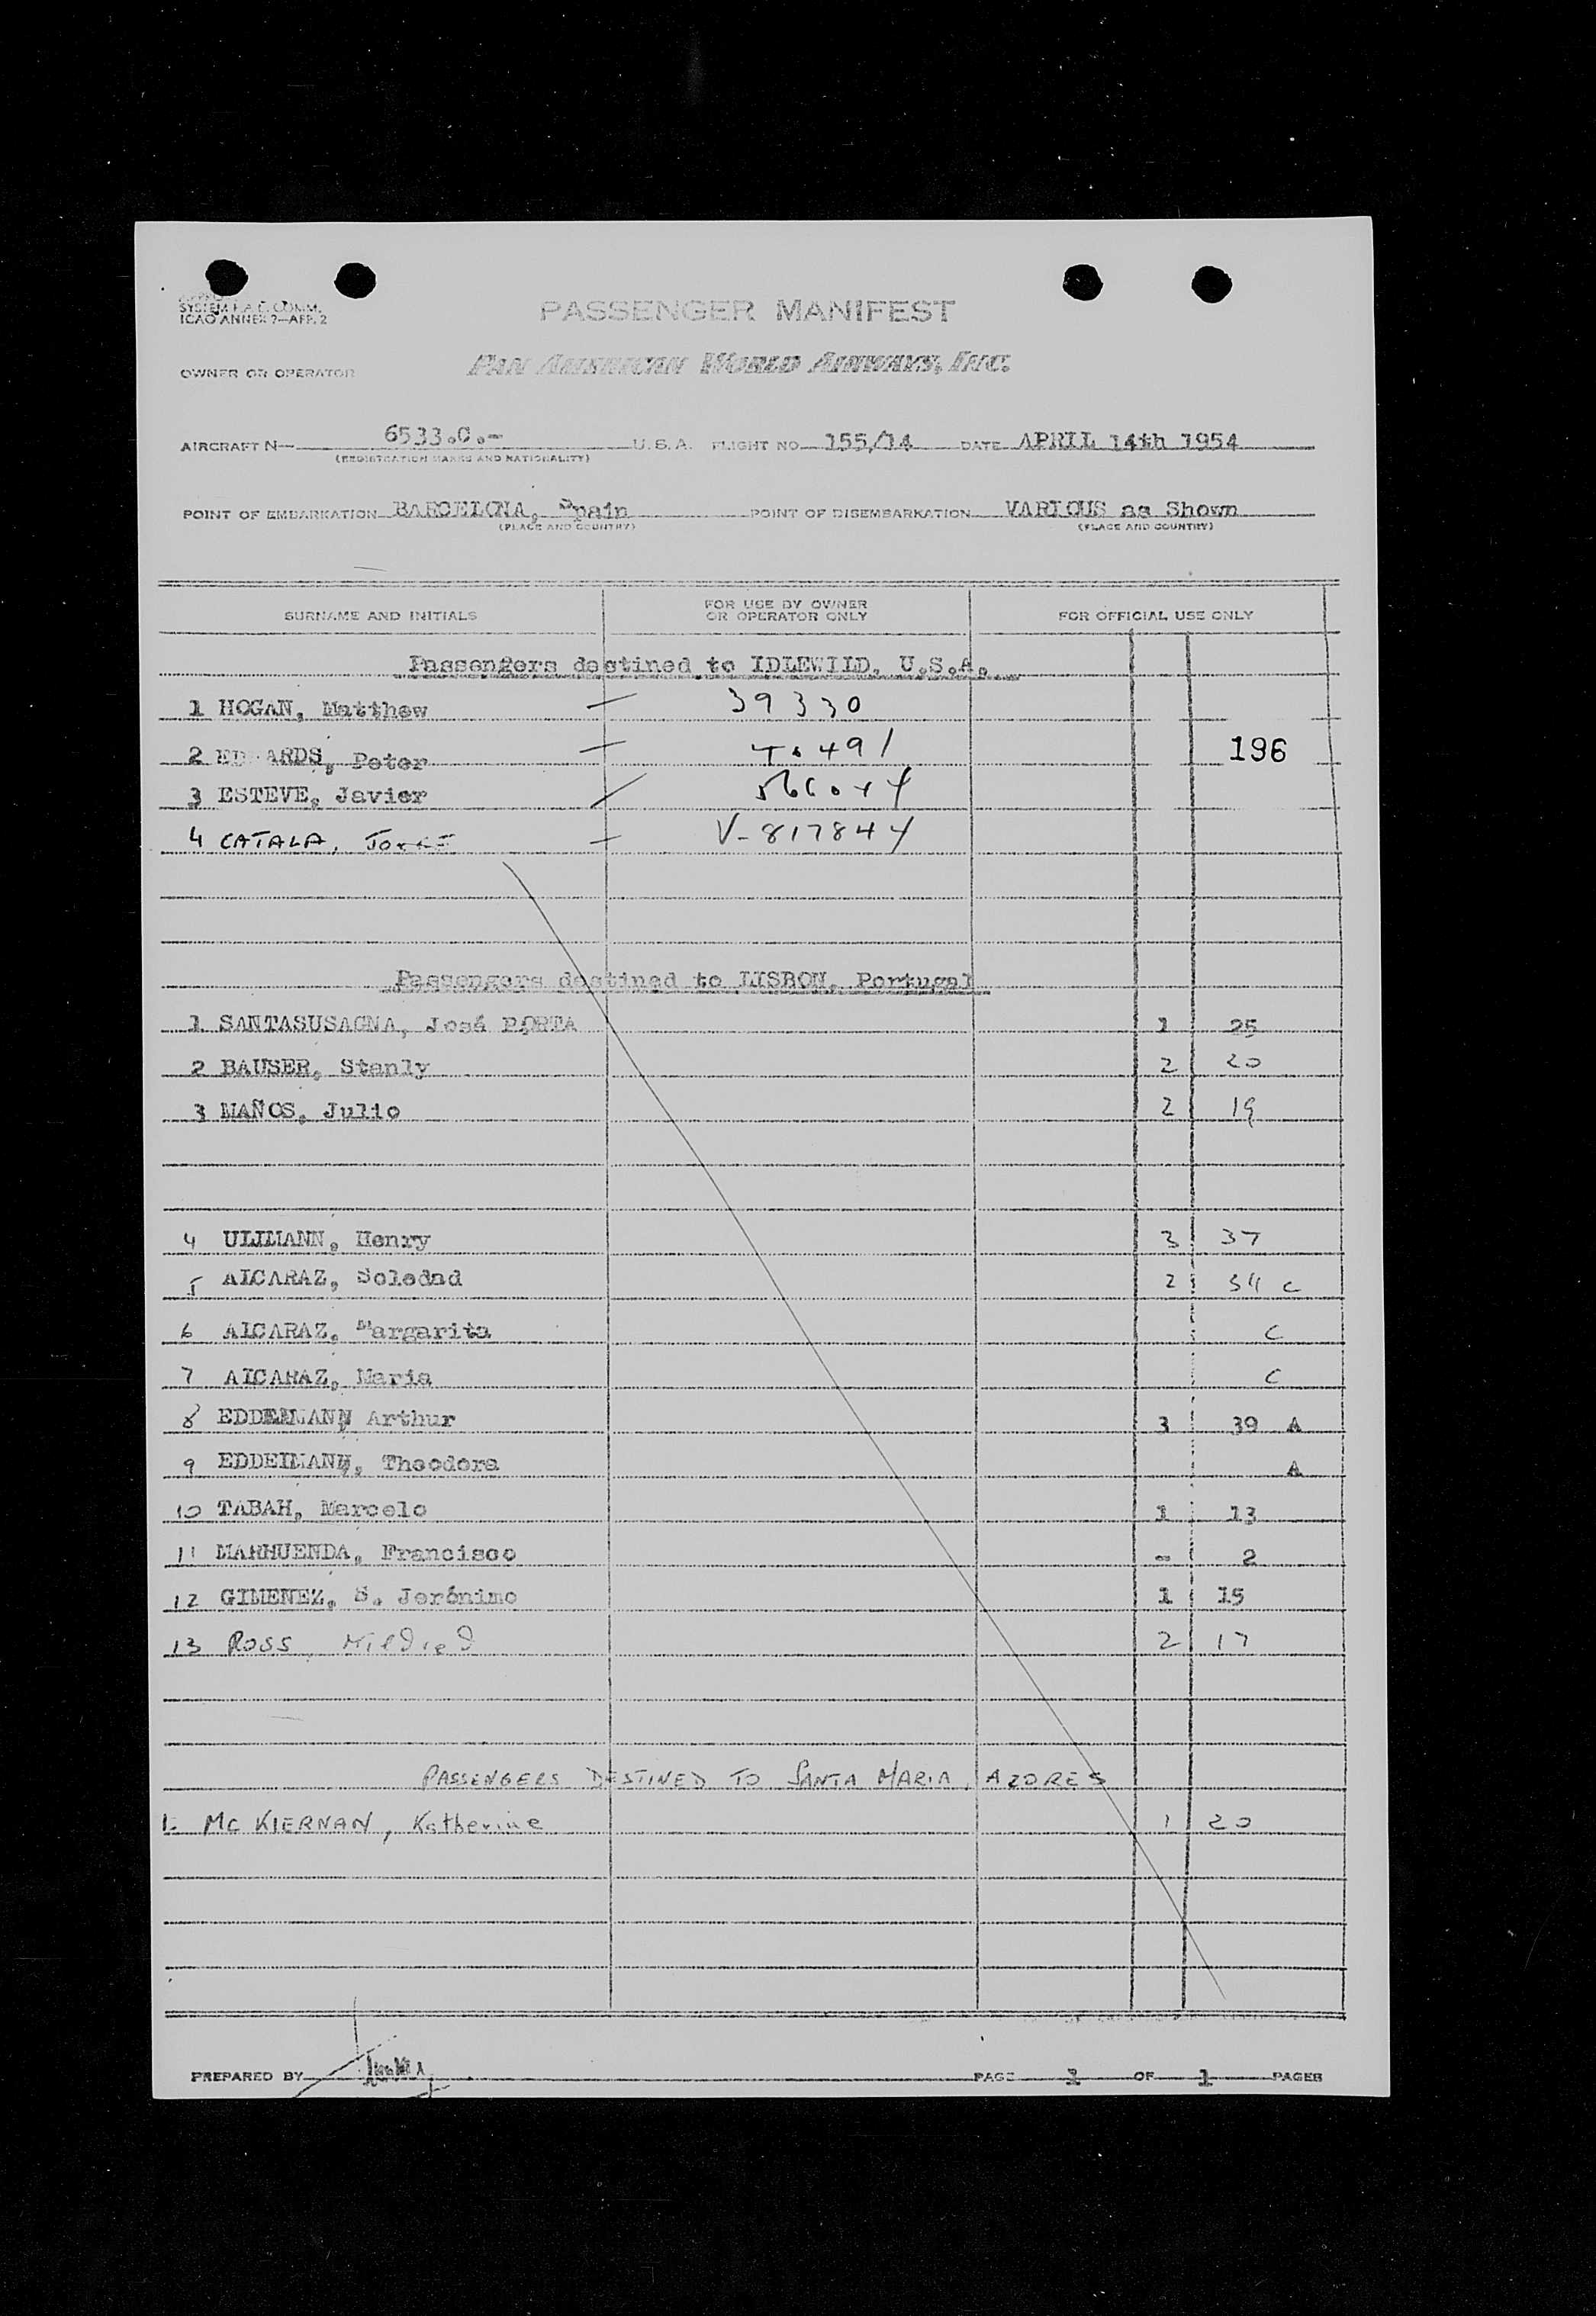 SYSTEM F.A.C. COMM.
ICAO ANNEX 9—APP. 2
PASSENGER MANIFEST
OWNER OR OPERATOR PAN AMERICAN WORLD AIRWAYS, INC.
AIRCRAFT N— 6533.C.- U.S.A. FLIGHT NO 155/14 DATE APRIL 14th 1954
(REGISTRATION MARKS AND NATIONALITY)
POINT OF EMBARKATION BARCELONA, Spain POINT OF DISEMBARKATION VARIOUS as Shown
(PLACE AND COUNTRY) (PLACE AND COUNTRY)
SURNAME AND INITIALS FOR USE BY OWNER OR OPERATOR ONLY FOR OFFICIAL USE ONLY
Passengers destined to IDLEWILD, U.S.A.
1 HOGAN, Matthew — 39330
2 EDWARDS, Peter — 196
3 ESTEVE, Javier
4 CATALA, JORGE — V-817844
Passengers destined to LISBON, Portugal
1 SANTASUSAGNA, José PORTA 1 25
2 BAUSER, Stanly 2 20
3 MAÑOS, Julio 2 19
4 ULLMANN, Henry 3 37
5 ALCARAZ, Soledad 2 34 C
6 ALCARAZ, Margarita C
7 ALCARAZ, Maria C
8 EDDELMANN Arthur 3 39 A
9 EDDELMANN, Theodora A
10 TABAH, Marcelo 1 13
11 MARHUENDA, Francisco - 2
12 GIMENEZ, S. Jerónimo 1 15
13 ROSS Mildred 2 17
PASSENGERS DESTINED TO SANTA MARIA, AZORES
1. MC KIERNAN, Katherine 1 20
PREPARED BY PAGE 1 OF 1 PAGES